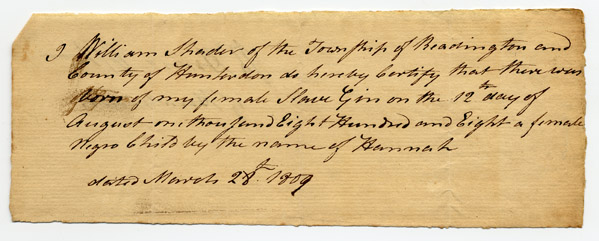 I William Shader of the Township of Readington and
County of Hunterdon do hereby Certify that there was
born of my female Slave Gin on the 12th day of
August on thousand Eight Hundred and Eight a female
Negro Child by the name of Hannah
dated March 28th. 1809